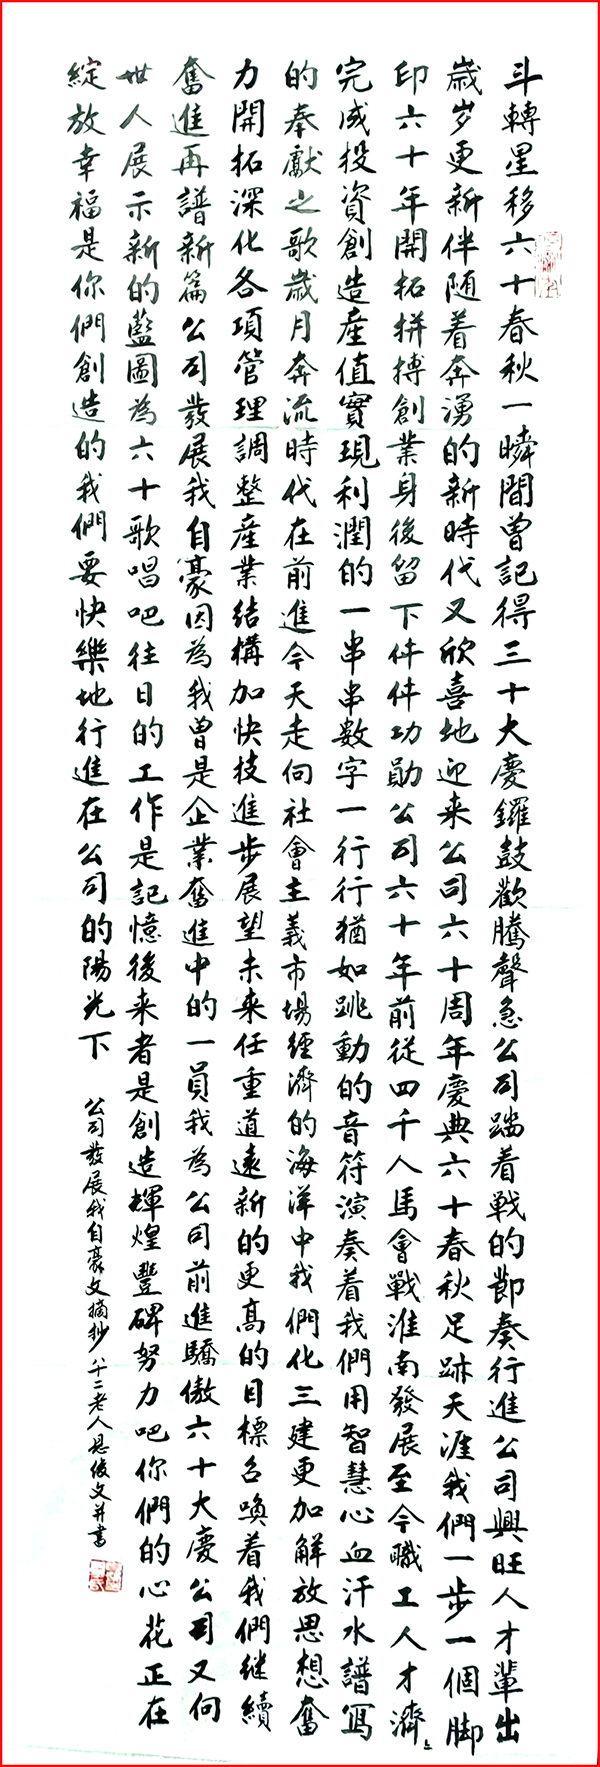 斗轉星移六十春秋一瞬間曾記得三十大慶鑼鼓歡騰聲急公司踏着戰的節奏行進公司興旺人才輩出
歲岁更新伴随着奔湧的新時代又欣喜地迎来公司六十周年慶典六十春秋足跡天涯我們一步一個脚
印六十年開拓拼搏創業身後留下件件功勛公司六十年前從四千人馬會戰淮南發展至今職工人才濟々
完成投資創造産值實現利潤的一串串数字一行行猶如跳動的音符演奏着我們用智慧心血汗水譜寫
的奉獻之歌歲月奔流時代在前進今天走向社會主義市場經濟的海洋中我們化三建更加解放思想奮
力開拓深化各項管理調整産業結構加快技進步展望未来任重道遠新的更高的目標召唤着我們继續
奮進再譜新篇公司發展我自豪因為我曾是企業奮進中的一員我為公司前進驕傲六十大慶公司又向
世人展示新的藍圖為六十歌唱吧往日的工作是記憶後来者是創造輝煌豐碑努力吧你們的心花正在
綻放幸福是你們創造的我們要快樂地行進在公司的陽光下
公司發展我自豪文摘抄八十二老人恩俊文并書